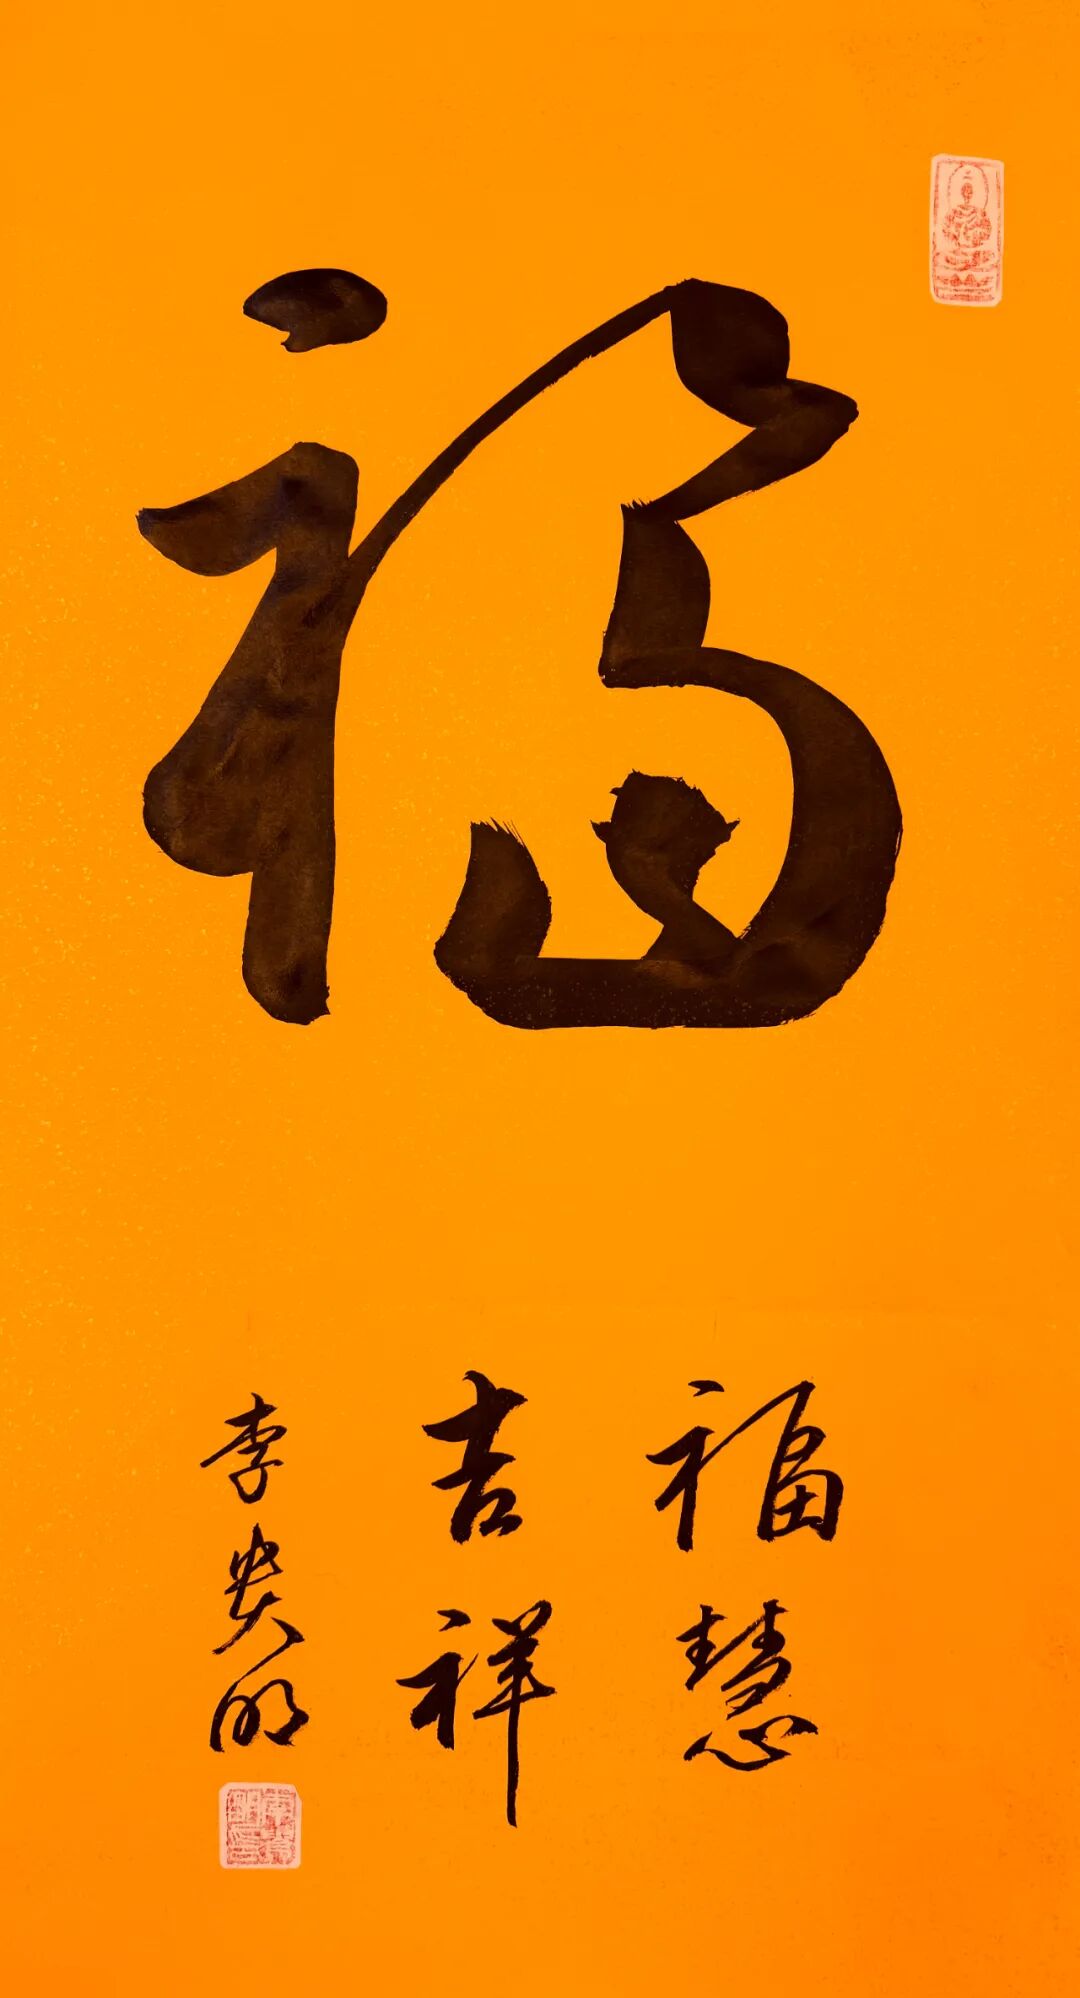 福
福慧
吉祥
李贵明